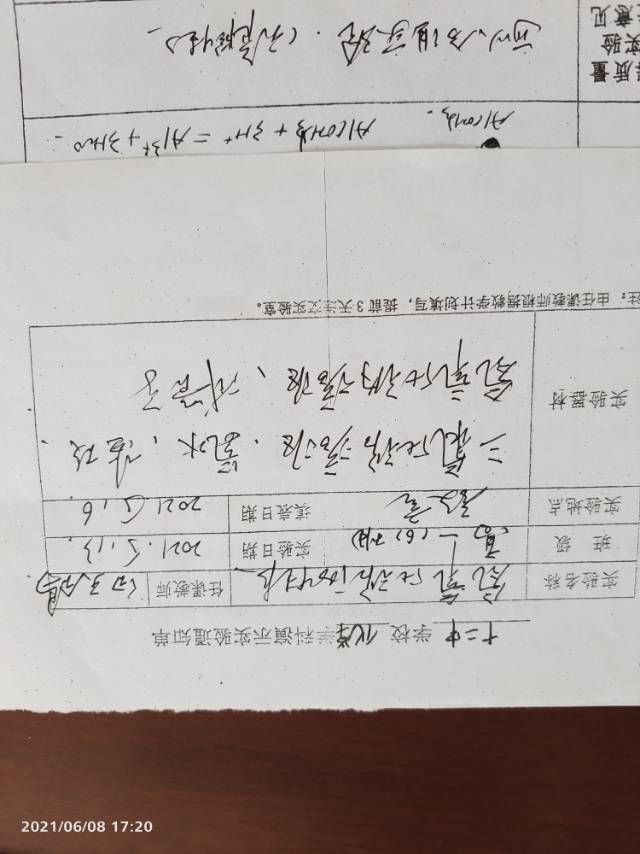 十二中 学校 化学 学科演示实验通知单
实验名称 氢氧化铝的性质 任课教师
班 级 高一(6)班 实验日期 2021.5.13.
实验地点 教室 填表日期 2021.5.6.
实验器材 三氯化铝溶液、氨水、盐酸、
氢氧化钠溶液、试管
注：由任课教师根据教学计划填写，提前3天送交实验室。
Al(OH)3. Al(OH)3 + 3H+ = Al3+ + 3H2O
质量
实验
意见
2021/06/08 17:20